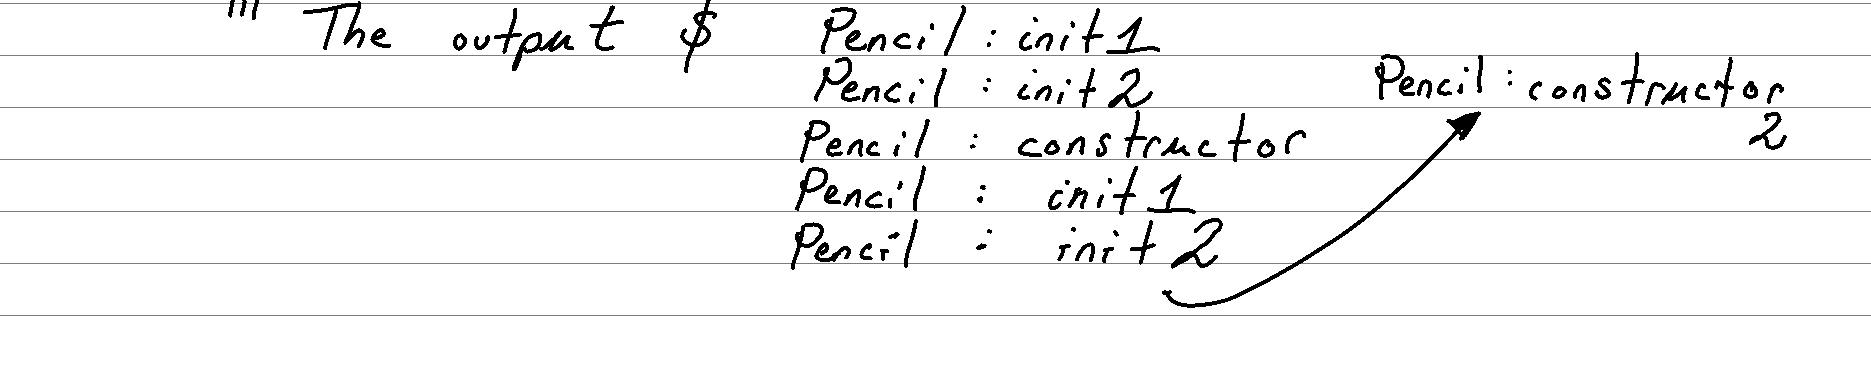 The output $ Pencil : init 1
Pencil : init 2
Pencil : constructor
Pencil : init 1
Pencil : init 2
Pencil : constructor
2